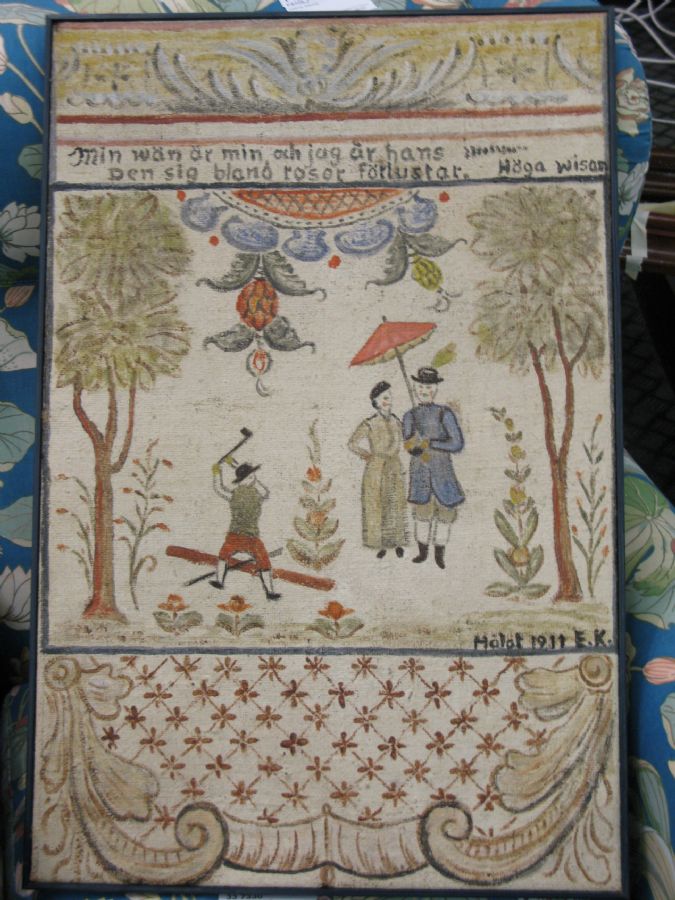 Min wän är min och jag är hans
Den sig bland rosor förlustar. Höga Wisan
Målat 1911 E.K.